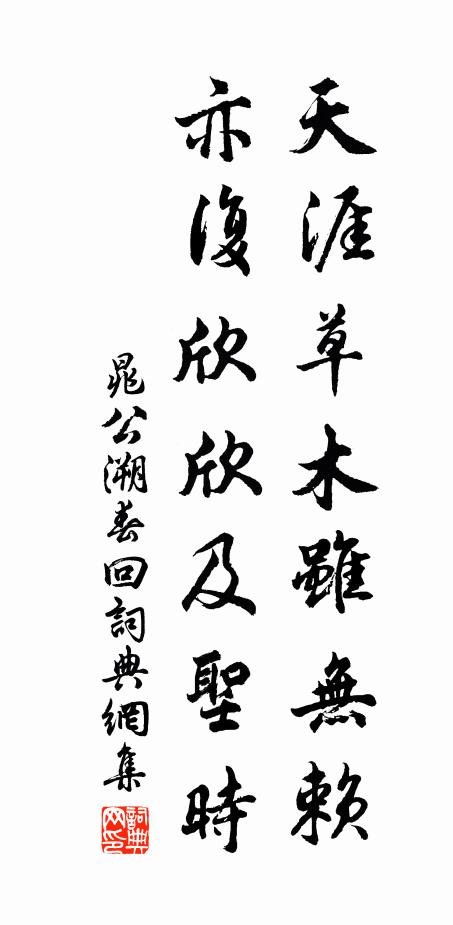 天涯草木雖無賴
亦復欣欣及聖時
晁公溯春回詞典網集
詞典網印